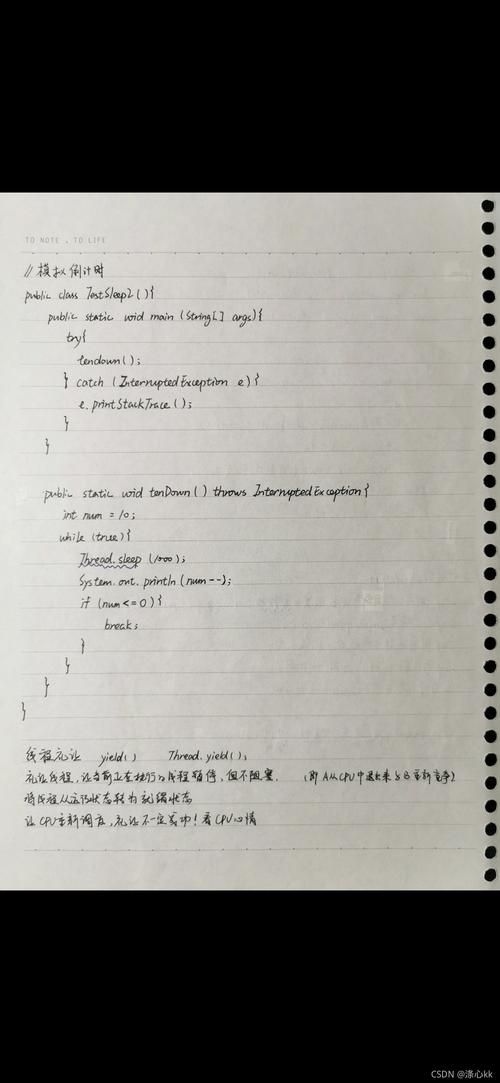 TO NOTE , TO LIFE
// 模拟倒计时
public class TestSleep2(){
public static void main (String[] args){
try{
tendown();
} catch (InterruptedException e){
e.printStackTrace();
}
}
public static void tenDown() throws InterruptedException{
int num = 10;
while (true){
Thread.sleep (1000);
System.out.println(num--);
if (num<=0){
break;
}
}
}
}
线程礼让 yield() Thread.yield();
礼让线程,让当前正在执行的线程暂停,但不阻塞. (即 A从CPU中退出来与B重新竞争)
将线程从运行状态转为就绪状态
让CPU重新调度,礼让不一定成功!看CPU心情
CSDN @涤心kk